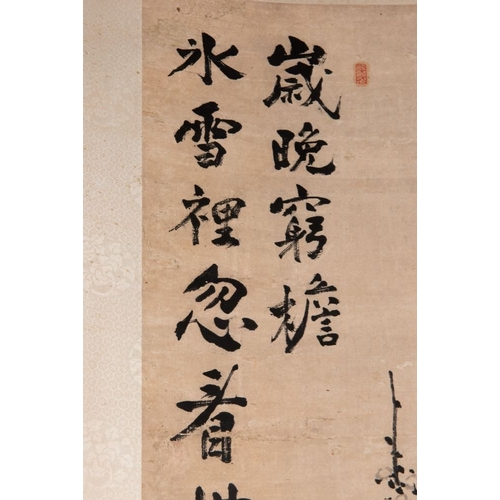 歲晚窮檐
氷雪裡忽看